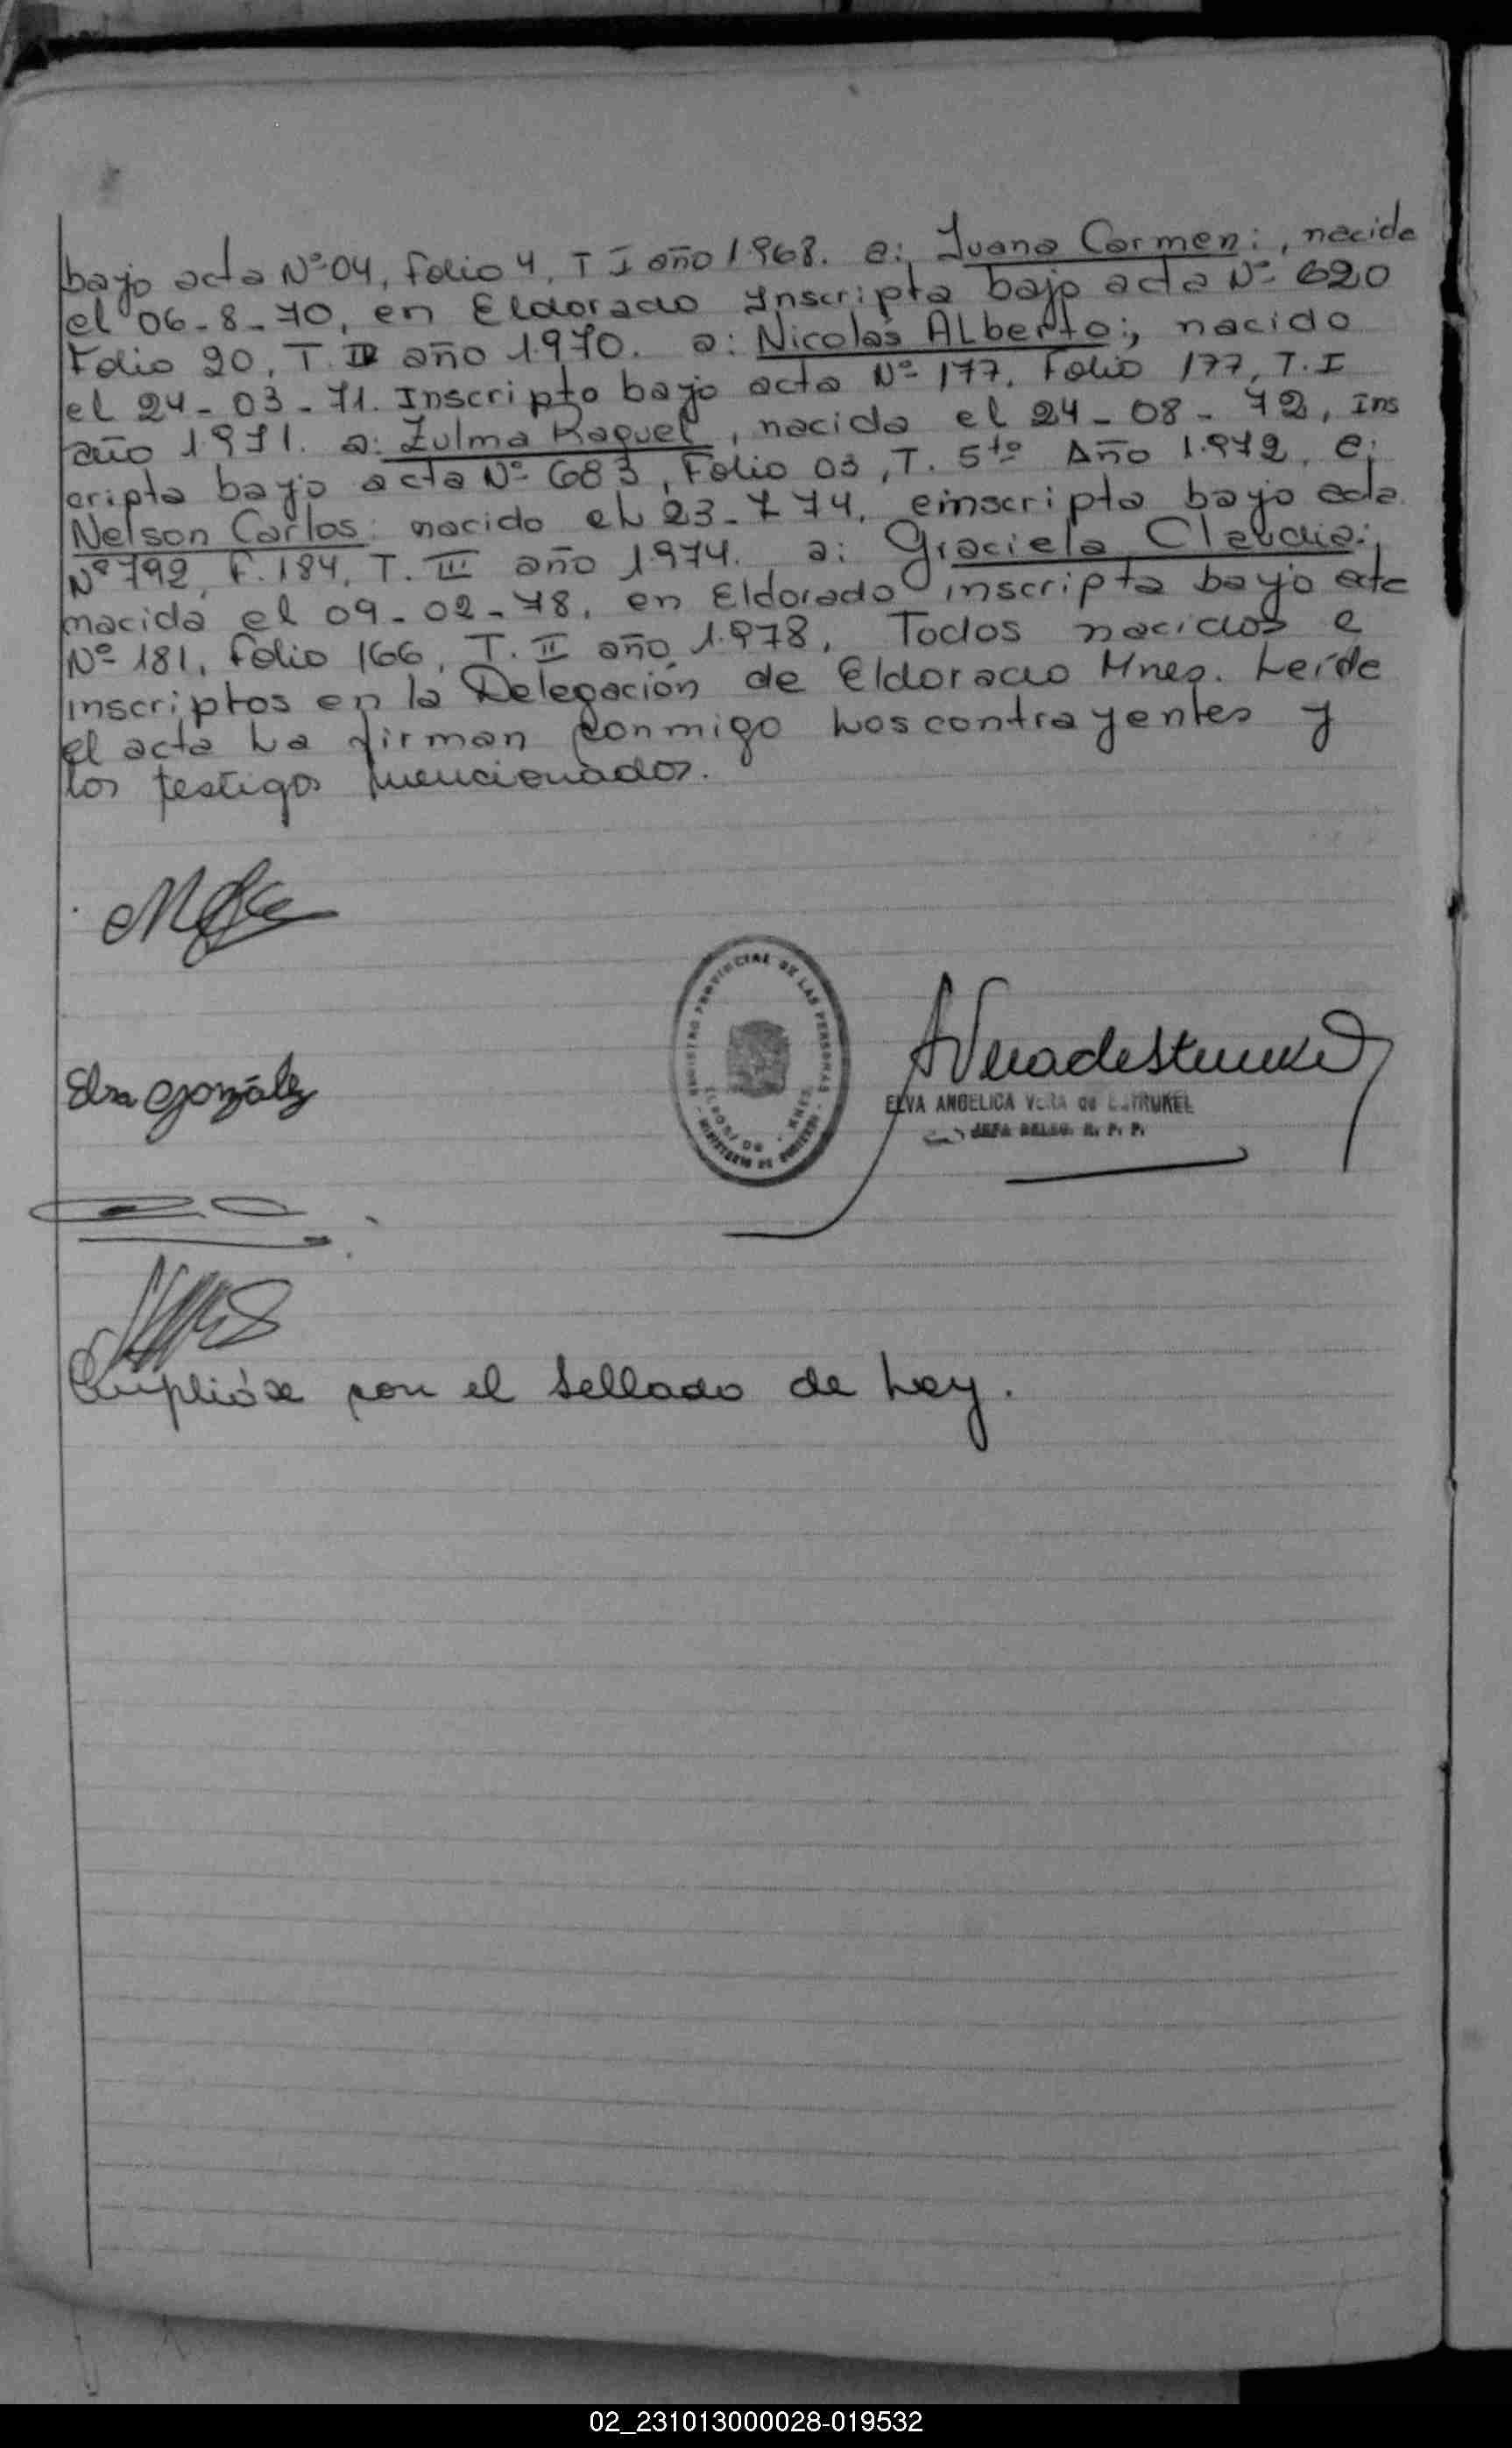 bajo acta Nº 04, Folio 4, T I año 1.968. a: Juana Carmen:, nacida
el 06-8-70, en Eldorado Inscripta bajo acta Nº 620
Folio 20, T. IV año 1.970. a: Nicolás ALberto:, nacido
el 24-03-71. Inscripto bajo acta Nº 177, Folio 177, T. I
año 1.971. a: Zulma Raquel, nacida el 24-08-72, Ins
cripta bajo acta Nº 683, Folio 03, T. 5to Año 1.972, a:
Nelson Carlos: nacido el 23-7-74, einscripta bajo acta
Nº 792, F. 184, T. III año 1.974. a: Graciela Claudia:,
nacida el 09-02-78, en Eldorado inscripta bajo acta
Nº 181, Folio 166, T. II año 1.978, Todos nacidos e
inscriptos en la Delegación de Eldorado Mnes. Leída
el acta La firman conmigo Los contrayentes y
los testigos mencionados.
REGISTRO PROVINCIAL DE LAS PERSONAS
ELDORADO - MNES.
MINISTERIO DE GOBIERNO
Elsa González
AVeradeStrukel
ELVA ANGELICA VERA de STRUKEL
JEFA DELEG. R. P. P.
Cumplióse con el Sellado de Ley.
02_231013000028-019532